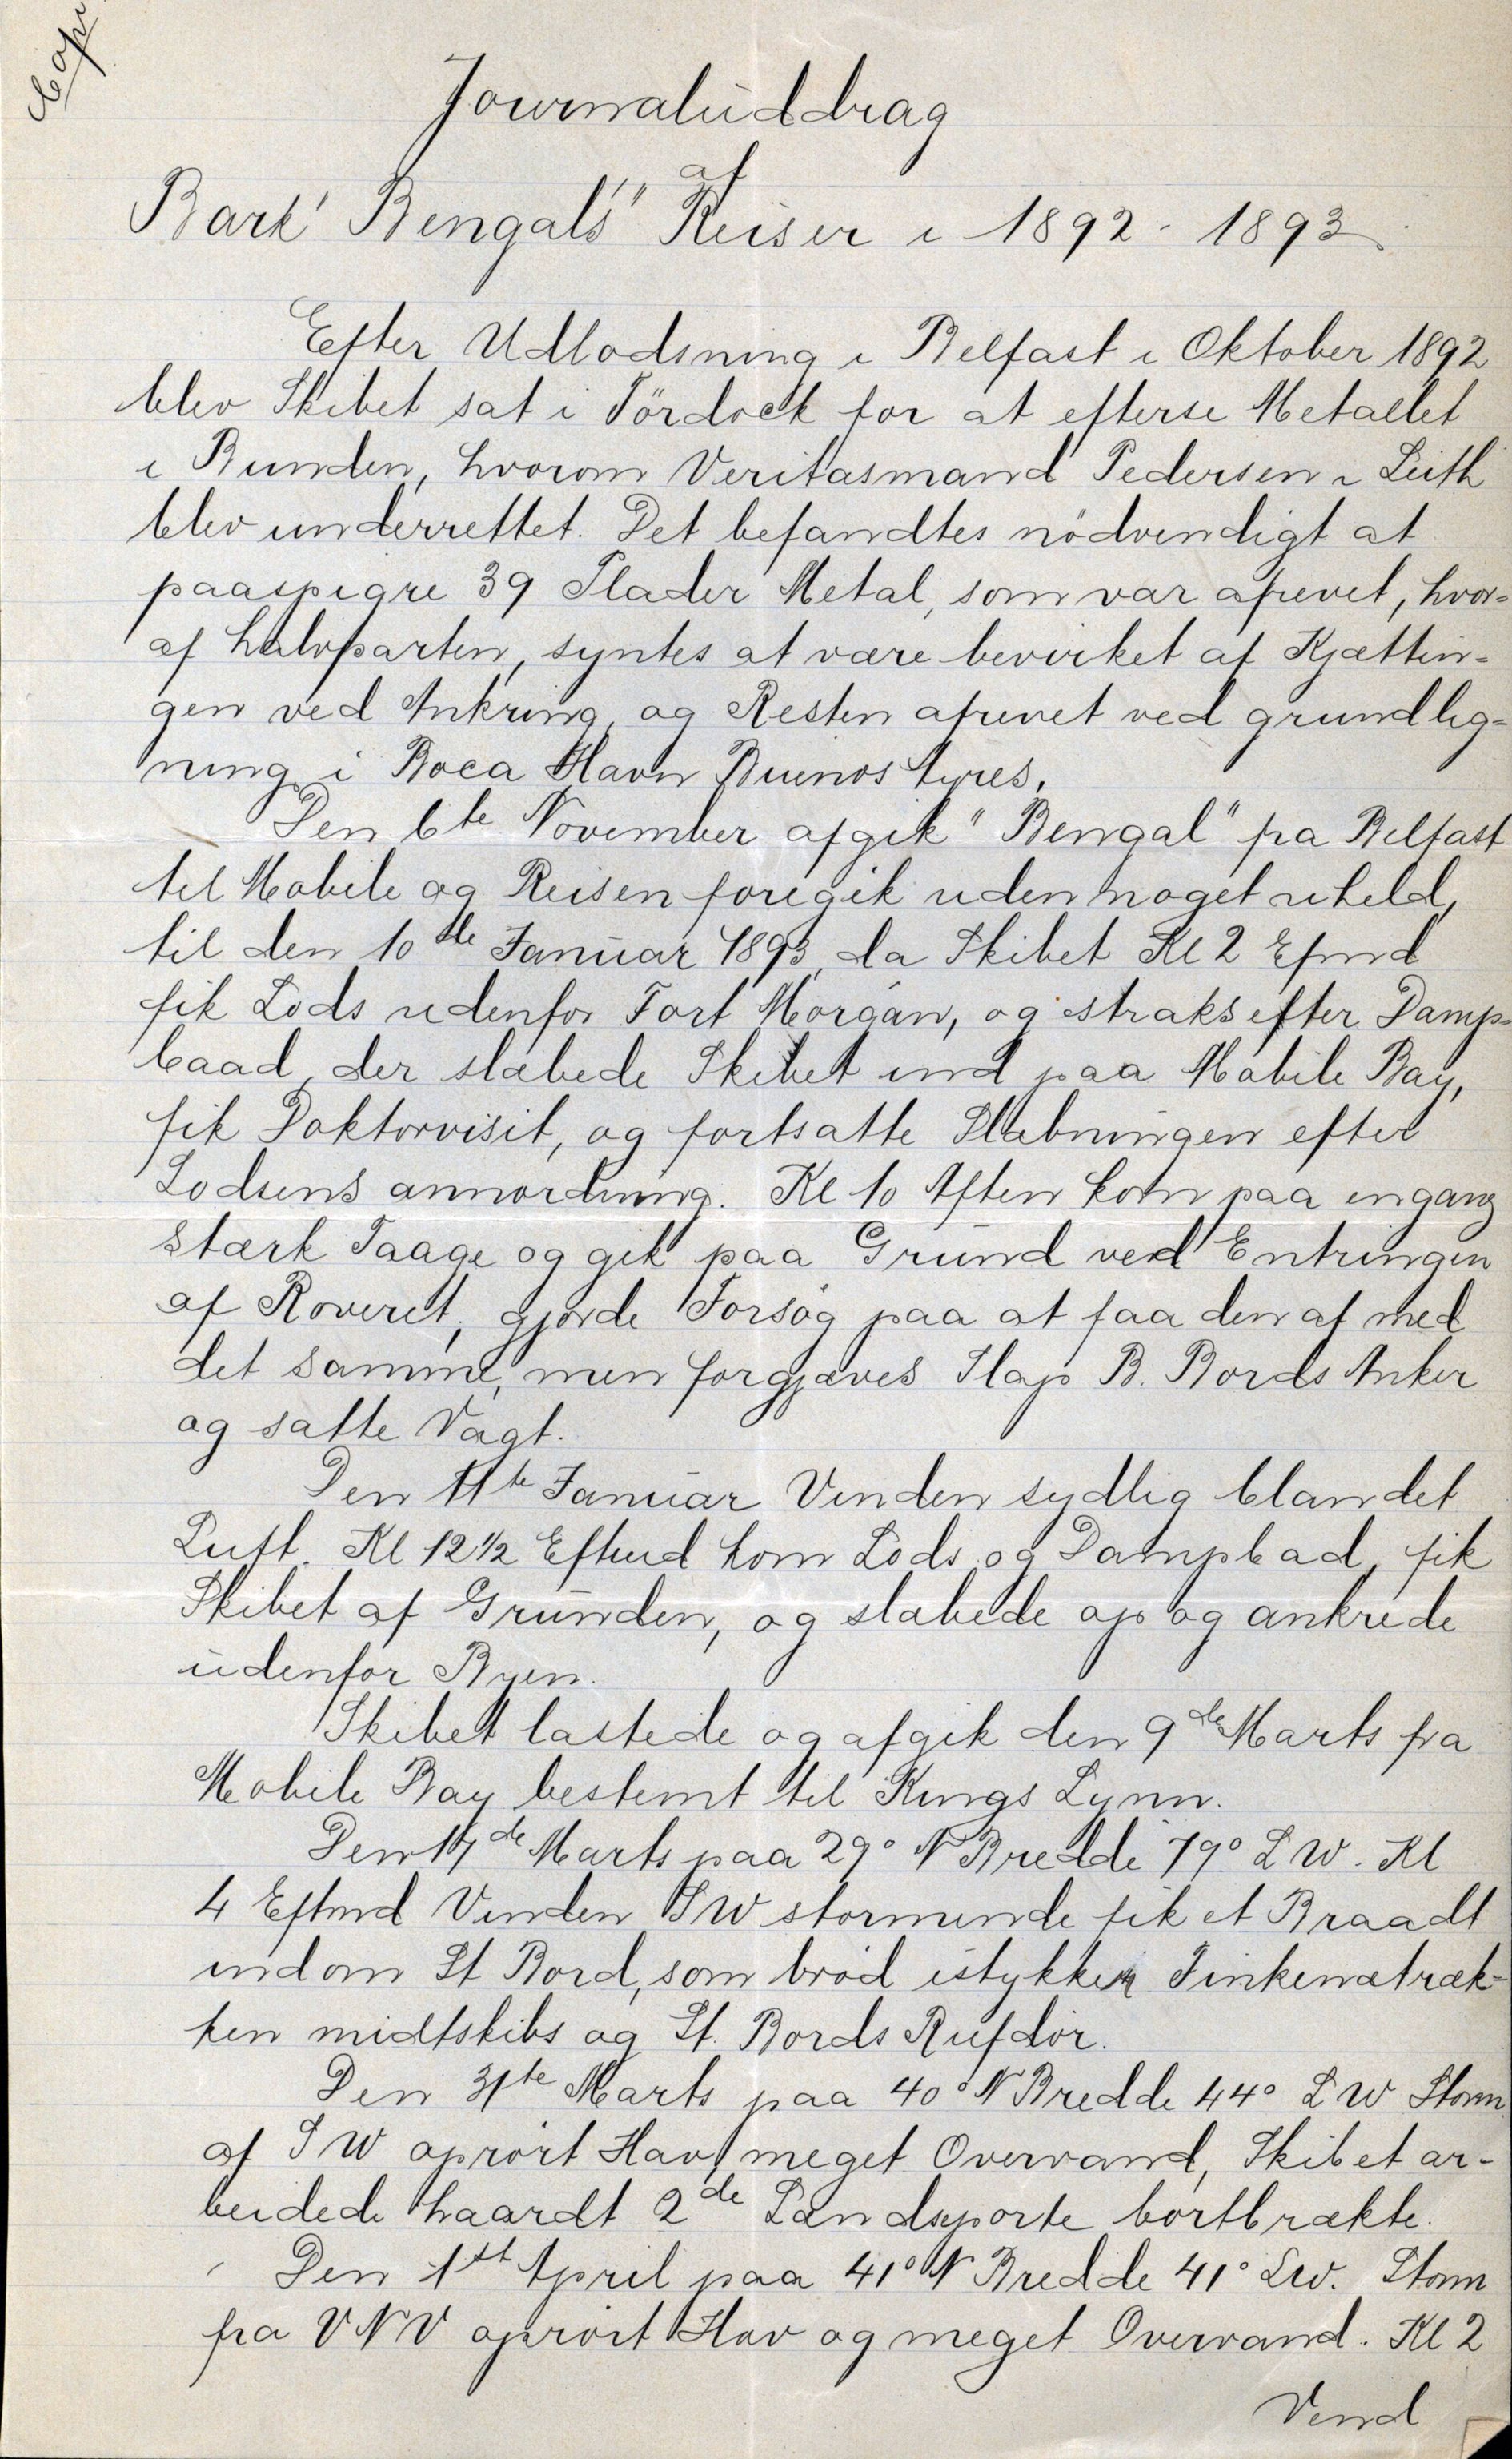 Copi
Journaluddrag
af
Bark "Bengals" Reiser i 1892 - 1893.
Efter Udlodsning i Belfast i Oktober 1892
blev Skibet sat i Tördock for at efterse Metallet
i Bunden, hvorom Veritasmand Pedersen i Leith
blev underrettet. Det befandtes nödvendigt at
paaspigre 39 Plader Metal, som var afrevet, hvor=
af halvparten, syntes at være bevirket af Kjættin=
gen ved Ankring, og Resten afrevet ved grundlig=
ning i Boca Havn Buenos Ayres.
Den 6te November afgik "Bengal" fra Belfast
til Mobile og Reisen foregik uden noget uheld,
til den 10de Januar 1893, da Skibet Kl 2 Efmd
fik Lods udenfor Fort Morgan, og straks efter Damp=
baad, der slæbede Skibet ind paa Mobile Bay,
fik Doktorvisit, og fortsatte Slæbningen efter
Lodsens annordning. Kl 10 Aften kom paa engang
stærk Taage og gik paa Grund ved Entringen
af Roveret, gjorde Forsög paa at faa den af med
det samme, men forgjæves Slap B. Bords Anker
og satte Vagt.
Den 11te Januar Vinden sydlig blandet
Luft. Kl 12 1/2 Eftmd kom Lods og Dampbad, fik
Skibet af Grunden, og slæbede op og ankrede
udenfor Byen.
Skibet lastede og afgik den 9de Marts fra
Mobile Bay bestemt til Kings Lynn.
Den 17de Marts paa 29° N Bredde 79° L W. Kl
4 Eftmd Vinden SW stormende fik et Braadt
indom St Bord, som bröd istykker Finkenætræk=
ken midtskibs og St. Bords Rufdör.
Den 31te Marts paa 40° N Bredde 44° L W Storm
af SW oprört Hav, meget Overvand, Skibet ar-
beidede haardt 2de Landseporte bortbrækte.
Den 1st April paa 41° N Bredde 41° LW. Storm
fra VNV oprört Hav og meget Overvand. Kl 2
Vend